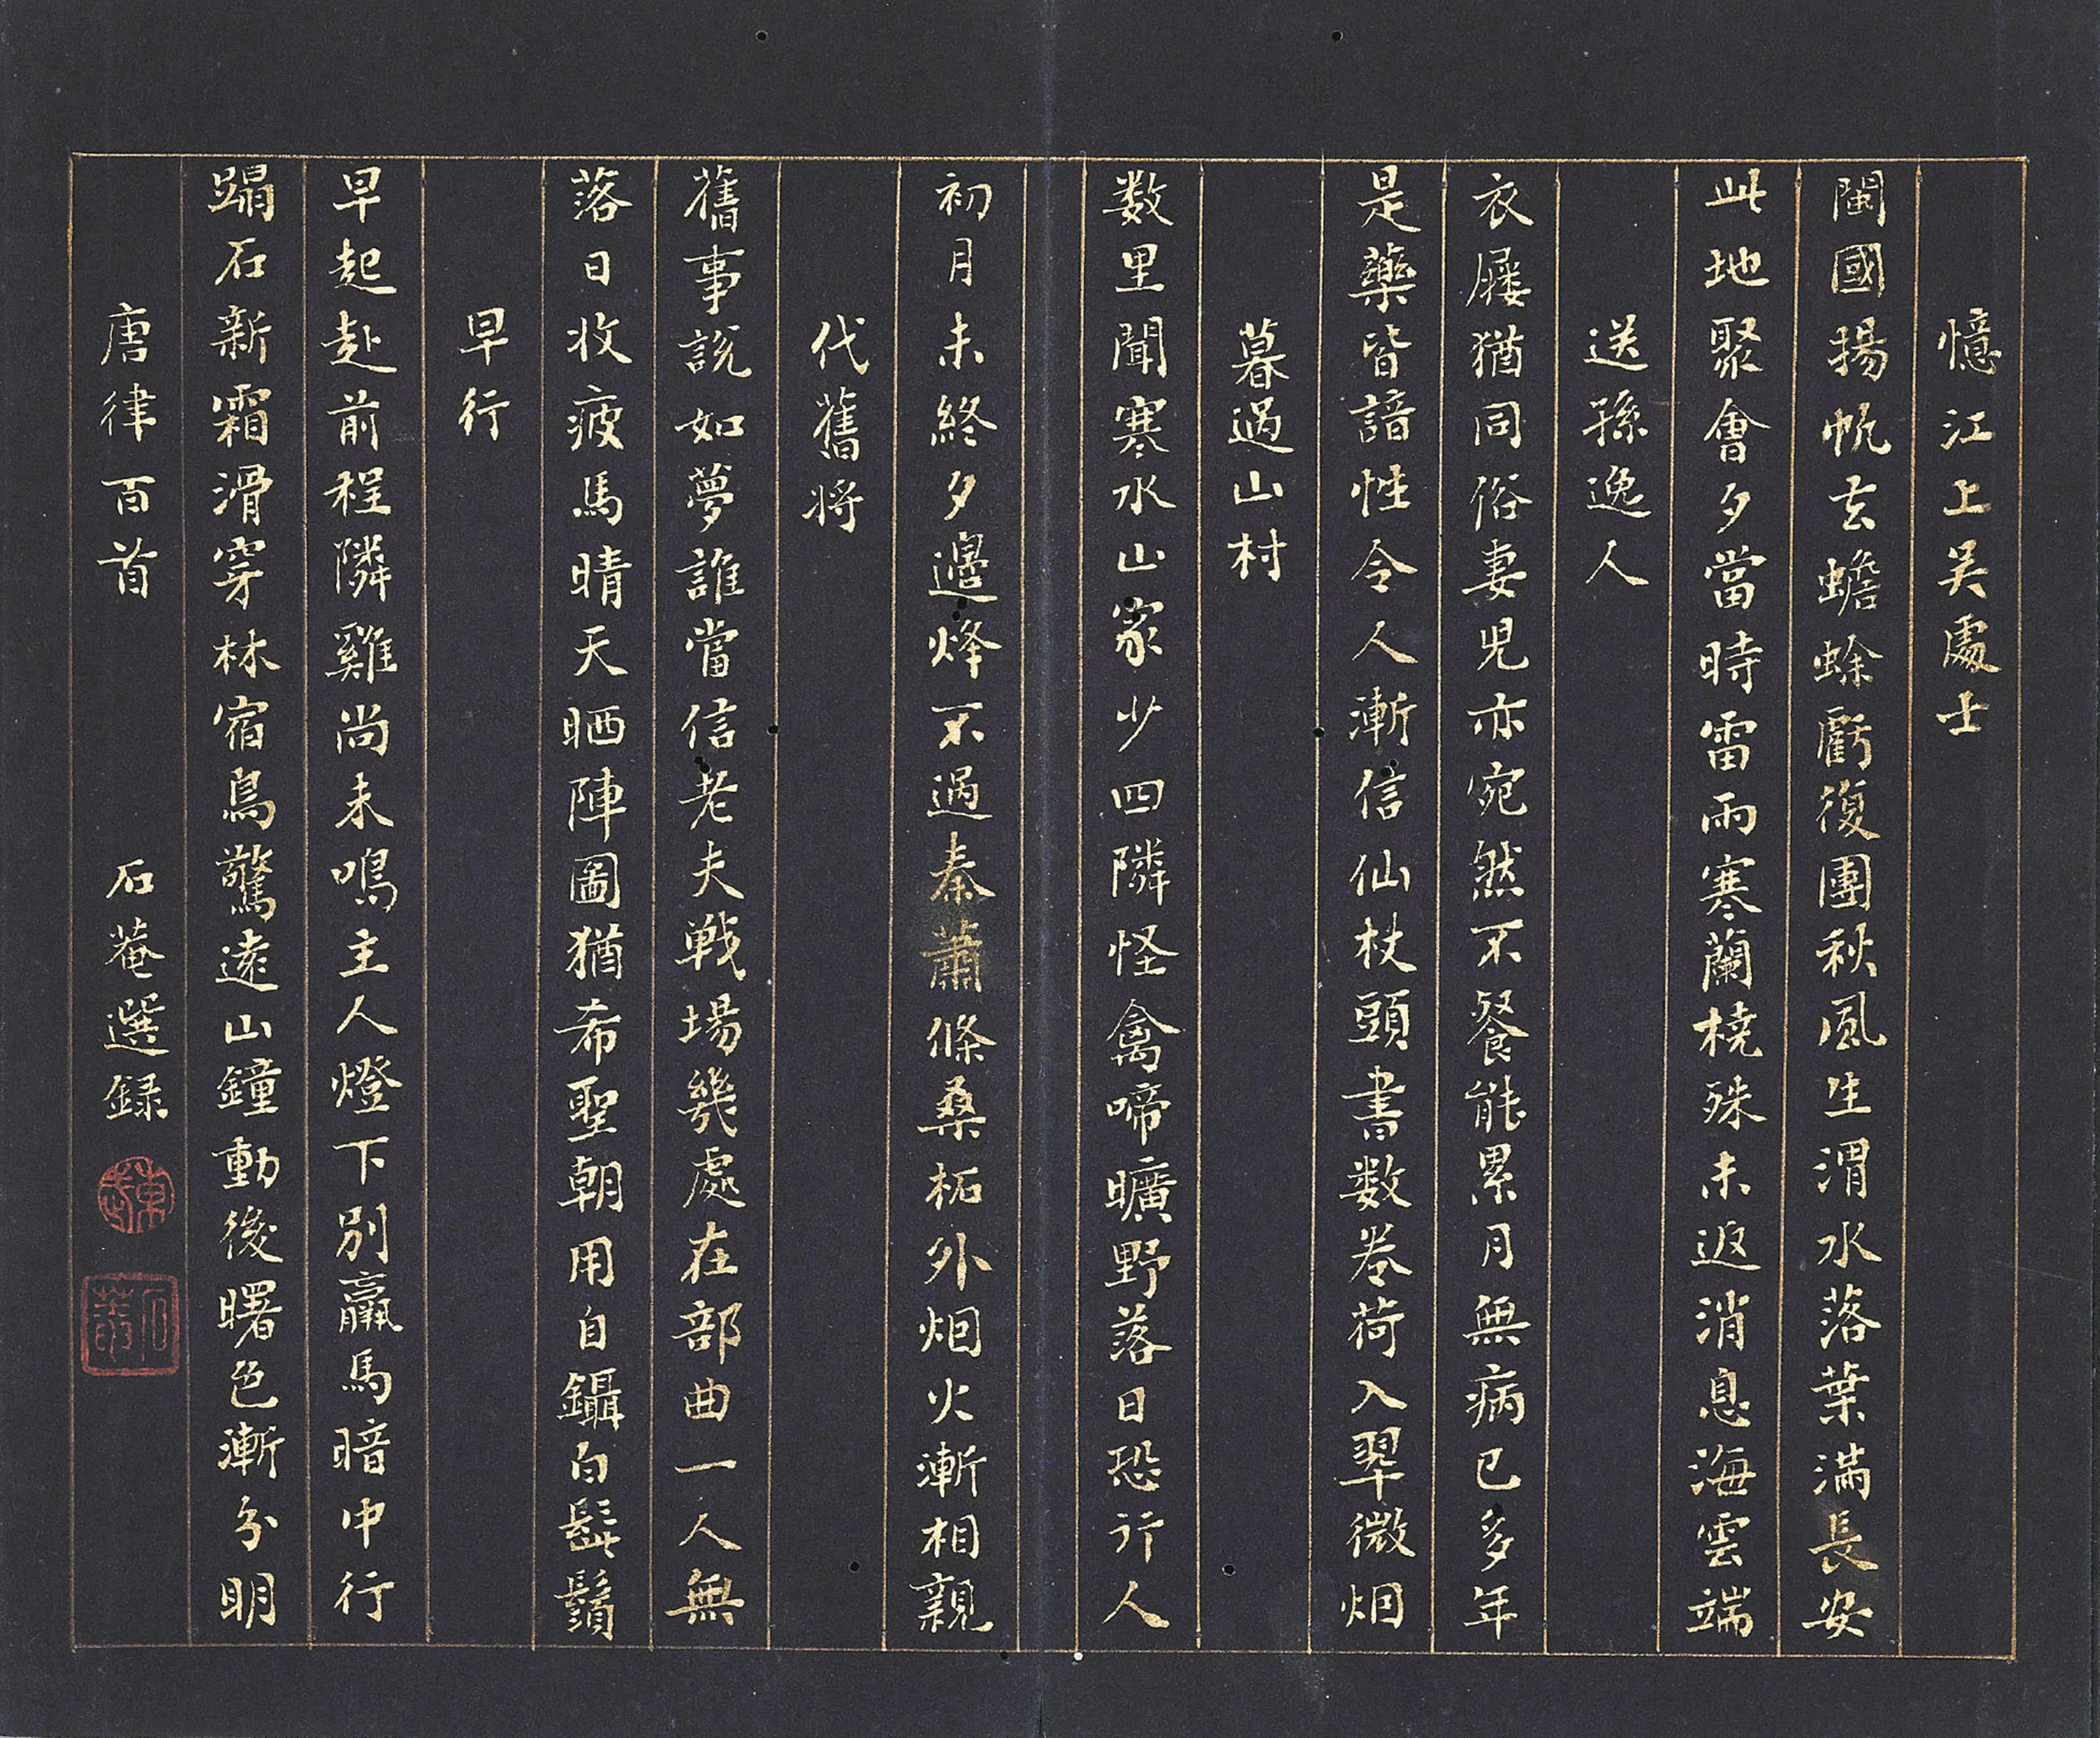 憶江上吴處士
閩國揚帆去蟾蜍虧復團秋風生渭水落葉滿長安
此地聚會夕當時雷雨寒蘭橈殊未返消息海雲端
送孫逸人
衣屨猶同俗妻兒亦宛然不餐能累月無病已多年
是藥皆諳性令人漸信仙杖頭書数卷荷入翠微烟
暮過山村
数里聞寒水山家少四隣怪禽啼曠野落日恐行人
初月未終夕邊烽不過秦蕭條桑柘外烟火漸相親
代舊将
舊事說如夢誰當信老夫戦場幾處在部曲一人無
落日收疲馬晴天晒陣圖猶希聖朝用自鑷白髭鬚
早行
早起赴前程隣雞尚未鳴主人燈下別羸馬暗中行
蹋石新霜滑穿林宿鳥驚遠山鐘動後曙色漸分明
唐律百首 石菴選録
石菴